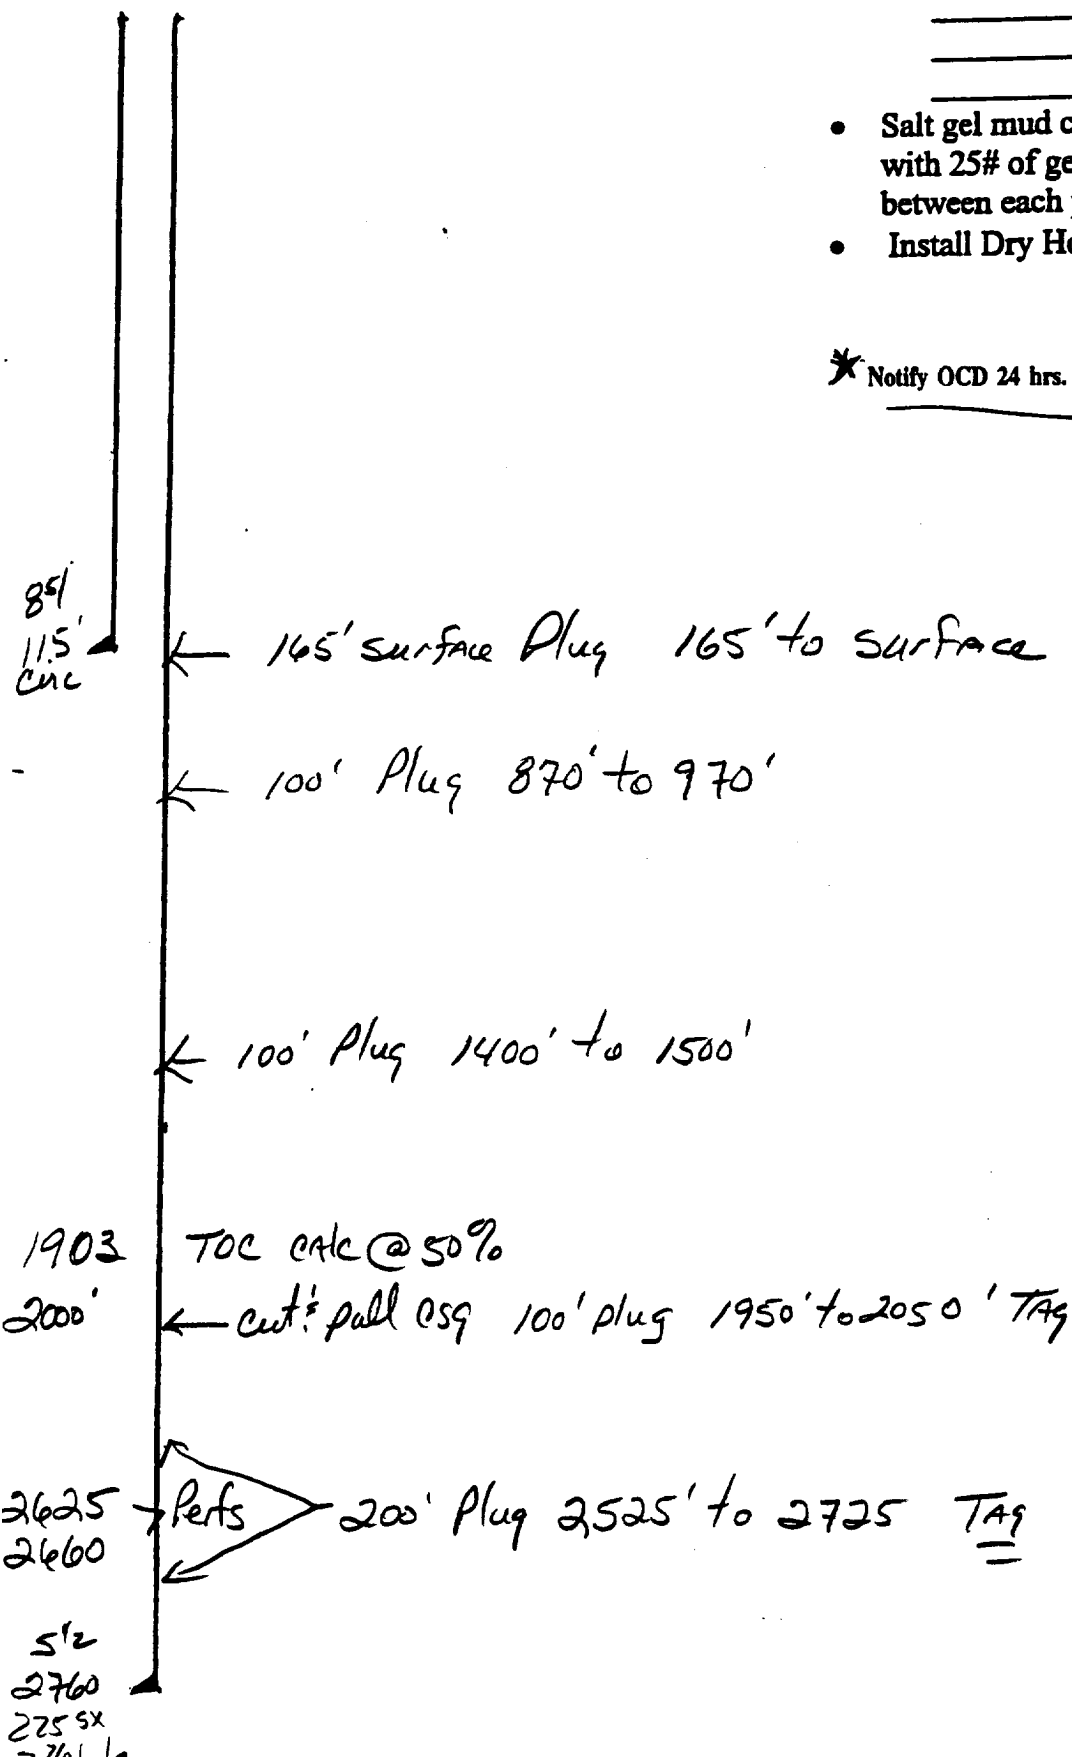 • Salt gel mud c
with 25# of ge
between each
• Install Dry H
* Notify OCD 24 hrs.
8 5/
115'
circ
165' surface Plug 165' to surface
100' Plug 870' to 970'
100' Plug 1400' to 1500'
1903 TOC calc @ 50%
2000' cut & pull csg 100' plug 1950' to 2050' TAg
2625 Perfs 200' Plug 2525' to 2725 TAg
2660
5 1/2
2760
225 sx